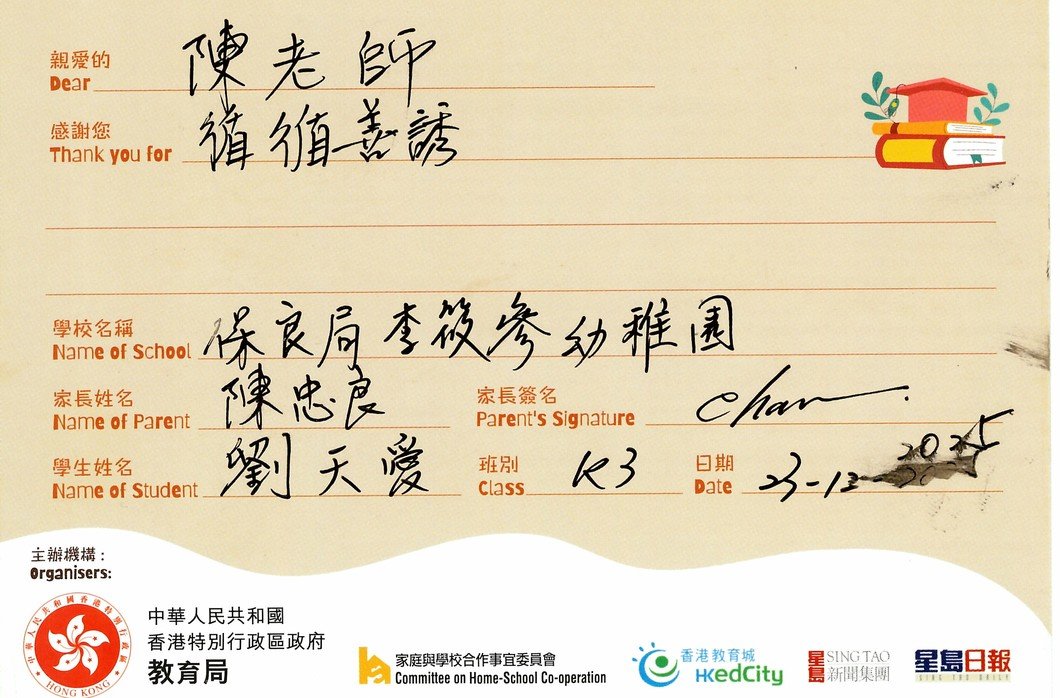 親愛的
Dear 陳老師
感謝您
Thank you for 循循善誘
學校名稱
Name of School 保良局李筱參幼稚園
家長姓名 家長簽名
Name of Parent 陳忠良 Parent's Signature Chan
學生姓名 班別 日期
Name of Student 劉天愛 Class K3 Date 23-12-2025
主辦機構：
Organisers:
中華人民共和國香港特別行政區
HONG KONG
中華人民共和國
香港特別行政區政府
教育局
家庭與學校合作事宜委員會
Committee on Home-School Co-operation
香港教育城
HKedCity
星島 SING TAO
新聞集團
星島日報
SING TAO DAILY